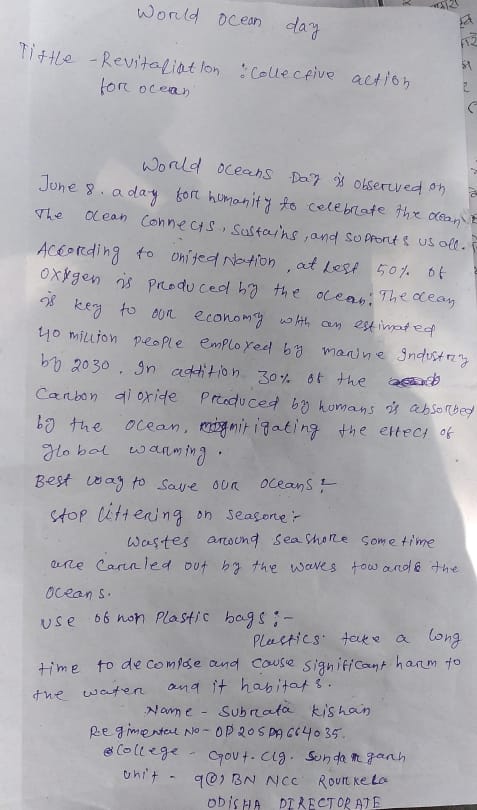 World ocean day
Tittle - Revitaliation : Collective action
for ocean
World oceans Day is observed on
June 8. a day for humanity to celebrate the ocean
The ocean connects, sustains, and supports us all.
According to United Nation, at lest 50% of
oxygen is produced by the ocean: The ocean
is key to our economy with an estimated
40 million people employed by marine Industry
by 2030. In addition 30% of the
Carbon dioxide produced by humans is absorbed
by the ocean, mignitigating the effect of
global warming.
Best way to save our oceans :-
stop littering on seasore :-
Wastes around seashore some time
are carried out by the waves towards the
oceans.
use of non plastic bags :-
Plastics take a long
time to decompose and cause significant harm to
the water and it habitats.
Name - Subrata kishan
Regimental No - OD20SDA664035.
College - Govt. clg. Sundargarh
Unit - BN NCC Rourkela
ODISHA DIRECTORATE